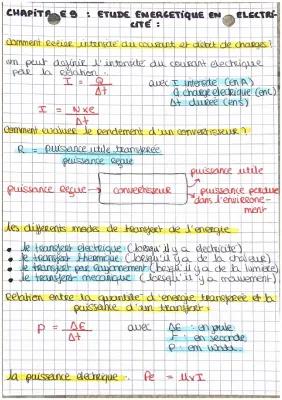 CHAPITRE 9 : ETUDE ENERGETIQUE EN ELECTRI-
CITÉ :
Comment relier intensité du courant et débit de charges?
on peut définir l'intensité du courant électrique
par la relation :
I = Q / Δt avec I intensité (en A)
Q charge électrique (en C)
Δt durée (en s)
I = N x e / Δt
Comment évaluer le rendement d'un convertisseur?
R = puissance utile transférée / puissance reçue
puissance utile
puissance reçue → convertisseur → puissance perdue
dans l'environne-
ment
les différents modes de transfert de l'énergie
• le transfert électrique (lorsqu'il y a électricité)
• le transfert thermique (lorsqu'il y a de la chaleur)
• le transfert par rayonnement (lorsqu'il y a de la lumière)
• le transfert mécanique (lorsqu'il y a mouvement)
Relation entre la quantité d'énergie transférée et la
puissance d'un transfert :
P = ΔE / Δt avec ΔE : en joule
: en seconde
P : en watt
la puissance électrique : Pe = U x I